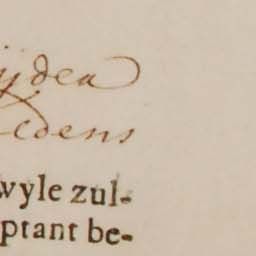 ydea
edens
wyle zul-
ptant be-